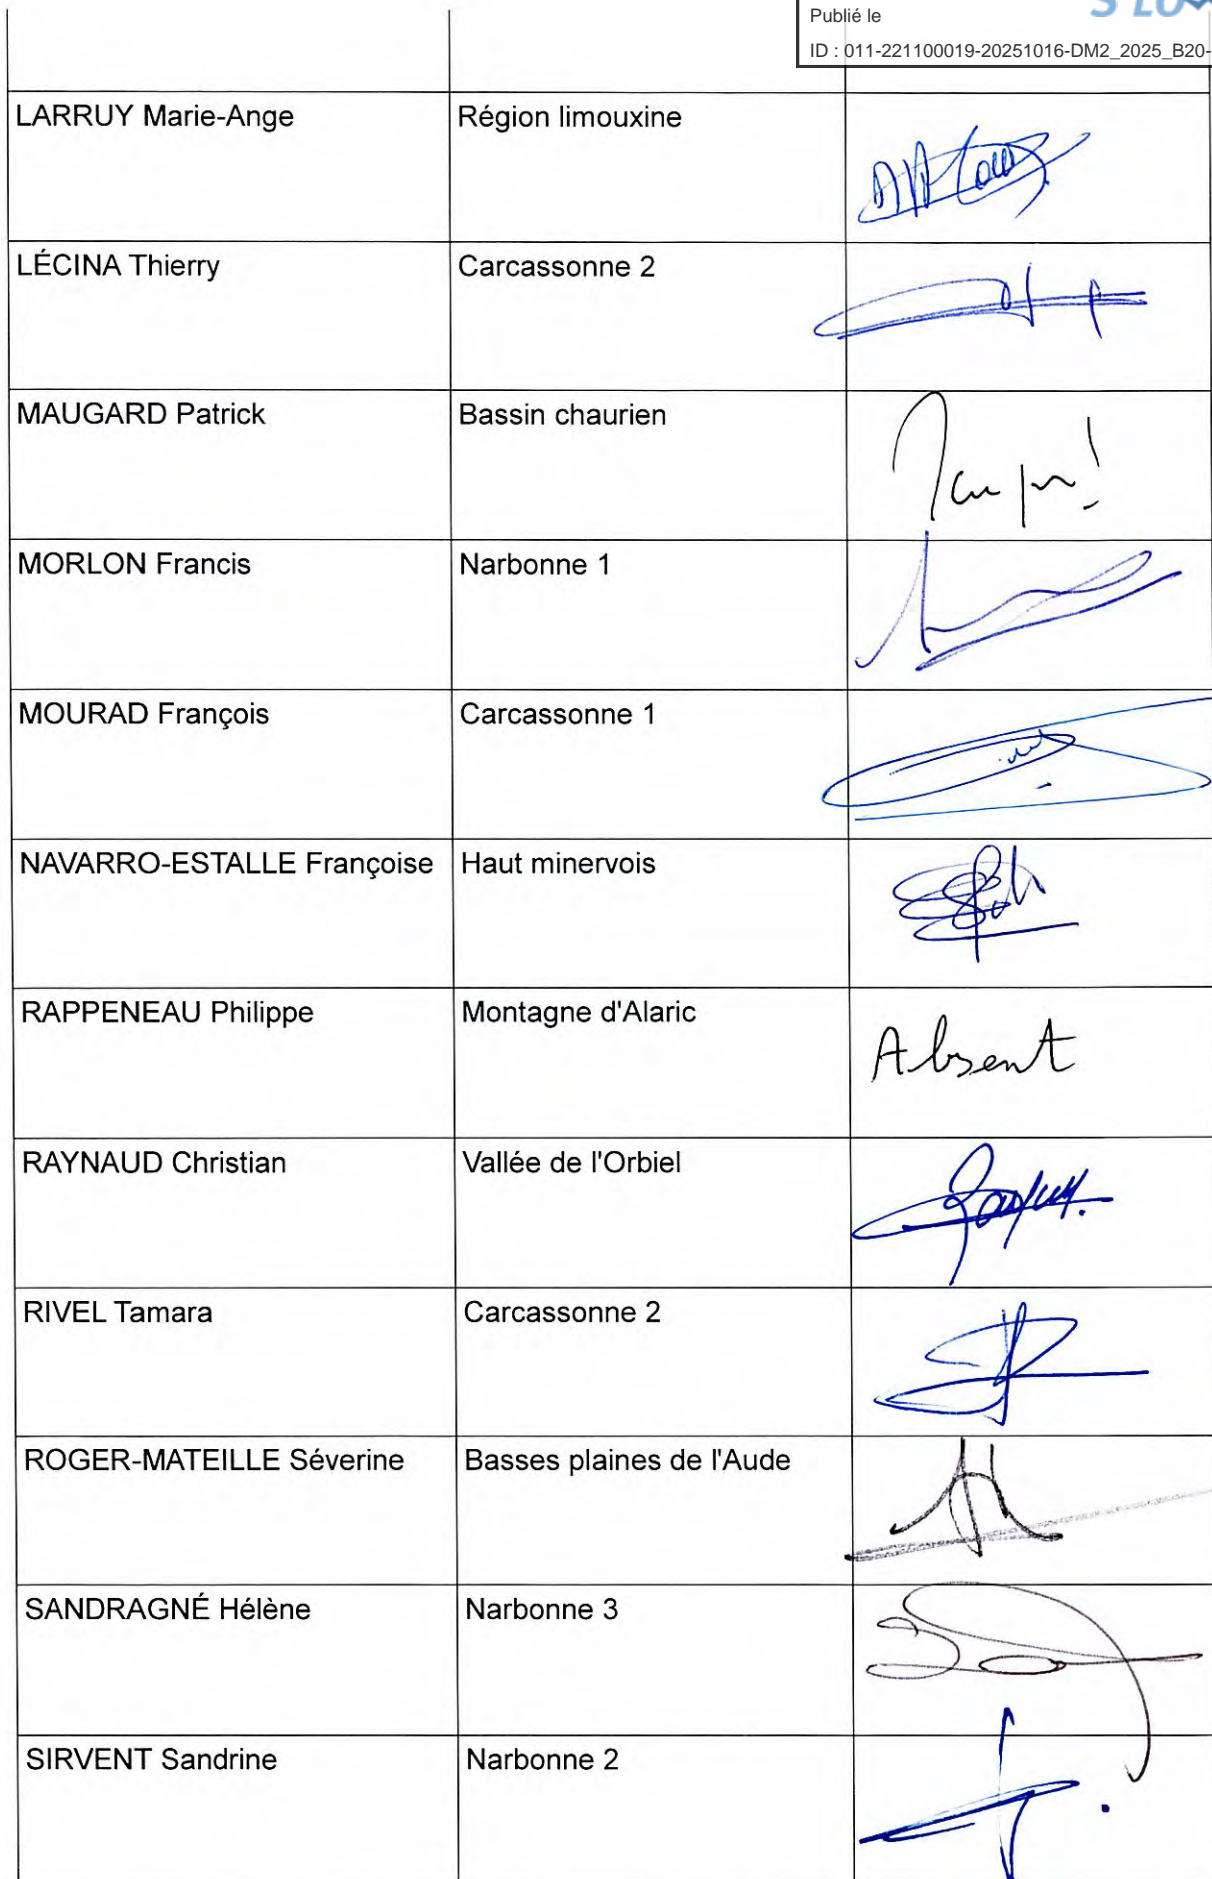 S LO
Publié le
ID : 011-221100019-20251016-DM2_2025_B20-
LARRUY Marie-Ange Région limouxine
LÉCINA Thierry Carcassonne 2
MAUGARD Patrick Bassin chaurien
MORLON Francis Narbonne 1
MOURAD François Carcassonne 1
NAVARRO-ESTALLE Françoise Haut minervois
RAPPENEAU Philippe Montagne d'Alaric Absent
RAYNAUD Christian Vallée de l'Orbiel
RIVEL Tamara Carcassonne 2
ROGER-MATEILLE Séverine Basses plaines de l'Aude
SANDRAGNÉ Hélène Narbonne 3
SIRVENT Sandrine Narbonne 2